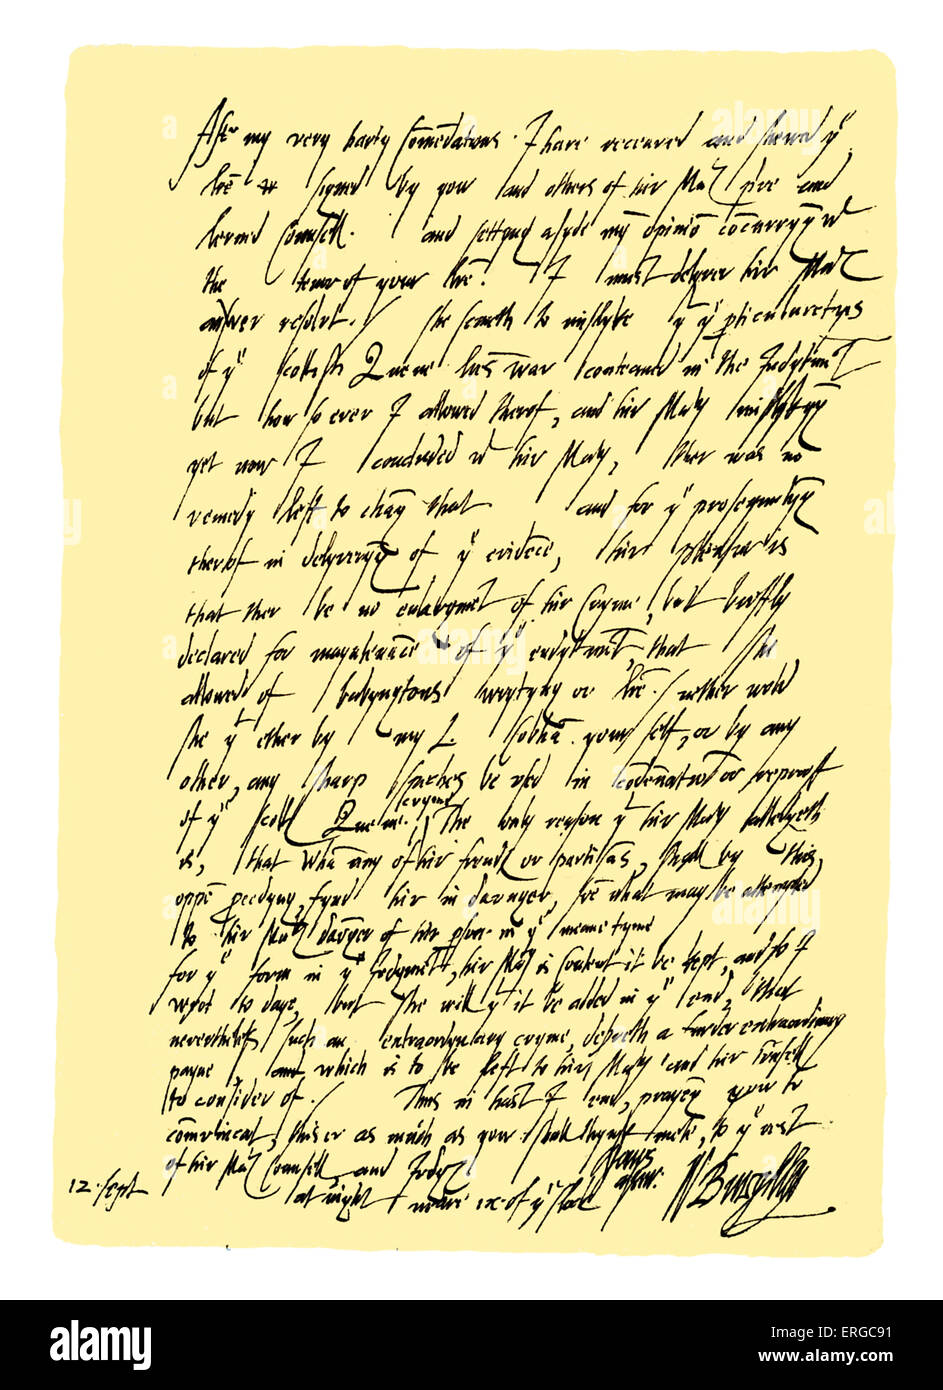 Aftr my very harty Comendations. I have receaved and shewed yᵉ
lre signed by yow and others of hir Maᵗ and
lerned Counsell. and settyng asyde my opiniō cōcurryng
the tenor of your lre. I must delyver hir Maᵗ
answer resolut./ she semeth to mislyke yᵗ yᵉ pticularetyes
of yᵉ Scottish Quene was conteaned in the Judgment
but how so ever I allowed therof, and hir Maty
yet now I concluded hir Maty, ther was no
remedy left to chāg that and for yᵉ
therof in delyveryng of yᵉ evidēce, hir plesur is
that ther be no enlargmēt of hir cryme, but breffly
declared for mayntenance of yᵉ endytmēt, that she
allowed of babyngtons wrytyng or lre./ nether wold
she yᵗ ether by my L. yourself, or by any
other, any sharp speches be used in cōdemnation or reproff
of yᵉ Scott Quene cryme. The only reason yᵗ hir Maty
is, that whā any of hir frends or partisās, shall by this
oppē procedyng, fynd hir in daunger, what may be attempted
to hir Maᵗ dāger of hir pson in yᵉ meane tyme
for yᵉ form in yᵉ Judgmēt, hir Maty is content it be kept, and so I
wrot to daye, but she will yᵗ it be added in yᵉ end, that
nevertheless such an extraordynary cryme, a furder extraordinary
payne, and which is to be left to hir Maty and hir Counsell
to consider of./ Thus in hast I end, prayeng yow to
comunicat, this as much as yow shall thynk mete, to yᵉ rest
of hir Maᵗ Counsell and Judgᵗ
12. sept at night Yours assur. W. Burghley
alamy
a
alamy
Image ID: ERGC91
www.alamy.com